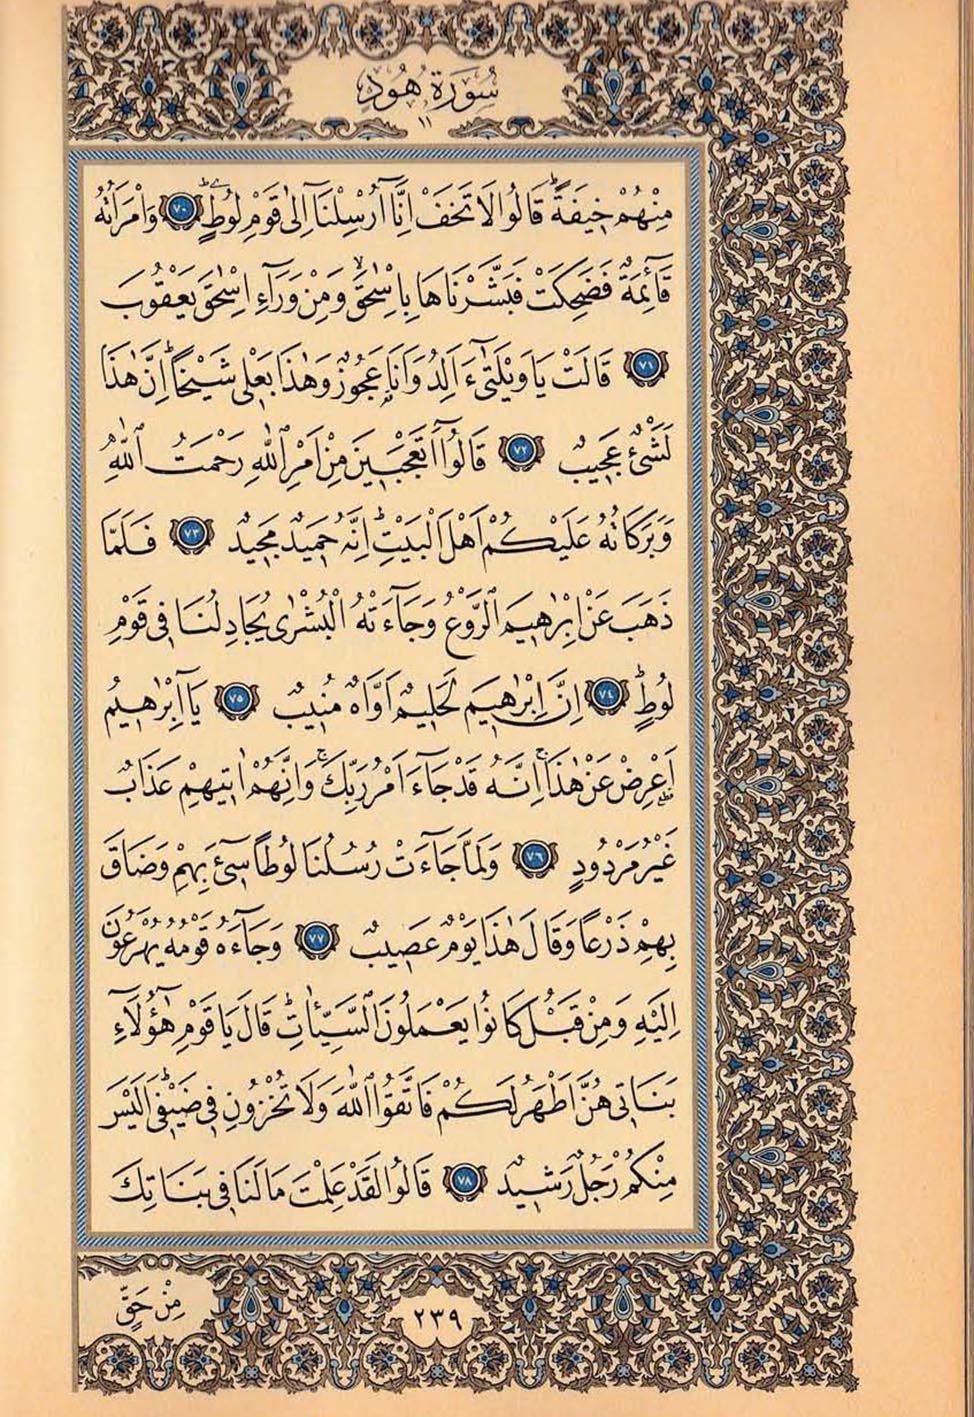 سُورَةُ هُودٍ
١١
مِنْهُمْ خِيفَةً قَالُوا لَا تَخَفْ اِنَّٓا اُرْسِلْنَٓا اِلٰى قَوْمِ لُوطٍ ﴿٧٠﴾ وَامْرَاَتُهُ
قَٓائِمَةٌ فَضَحِكَتْ فَبَشَّرْنَاهَا بِاِسْحٰقَ وَمِنْ وَرَٓاءِ اِسْحٰقَ يَعْقُوبَ
﴿٧١﴾ قَالَتْ يَا وَيْلَتٰٓى ءَاَلِدُ وَاَنَا عَجُوزٌ وَهٰذَا بَعْلِى شَيْخًا اِنَّ هٰذَا
لَشَىْءٌ عَجِيبٌ ﴿٧٢﴾ قَالُٓوا اَتَعْجَبِينَ مِنْ اَمْرِ اللّٰهِ رَحْمَتُ اللّٰهِ
وَبَرَكَاتُهُ عَلَيْكُمْ اَهْلَ الْبَيْتِ اِنَّهُ حَمِيدٌ مَجِيدٌ ﴿٧٣﴾ فَلَمَّا
ذَهَبَ عَنْ اِبْرٰهِيمَ الرَّوْعُ وَجَٓاءَتْهُ الْبُشْرٰى يُجَادِلُنَا فِى قَوْمِ
لُوطٍ ﴿٧٤﴾ اِنَّ اِبْرٰهِيمَ لَحَلِيمٌ اَوَّاهٌ مُنِيبٌ ﴿٧٥﴾ يَٓا اِبْرٰهِيمُ
اَعْرِضْ عَنْ هٰذَا اِنَّهُ قَدْ جَٓاءَ اَمْرُ رَبِّكَ وَاِنَّهُمْ اٰتِيهِمْ عَذَابٌ
غَيْرُ مَرْدُودٍ ﴿٧٦﴾ وَلَمَّا جَٓاءَتْ رُسُلُنَا لُوطًا سِٓىءَ بِهِمْ وَضَاقَ
بِهِمْ ذَرْعًا وَقَالَ هٰذَا يَوْمٌ عَصِيبٌ ﴿٧٧﴾ وَجَٓاءَهُ قَوْمُهُ يُهْرَعُونَ
اِلَيْهِ وَمِنْ قَبْلُ كَانُوا يَعْمَلُونَ السَّيِّـَٔاتِ قَالَ يَا قَوْمِ هٰٓؤُلَٓاءِ
بَنَاتِى هُنَّ اَطْهَرُ لَكُمْ فَاتَّقُوا اللّٰهَ وَلَا تُخْزُونِ فِى ضَيْفِى اَلَيْسَ
مِنْكُمْ رَجُلٌ رَشِيدٌ ﴿٧٨﴾ قَالُوا لَقَدْ عَلِمْتَ مَا لَنَا فِى بَنَاتِكَ
مِنْ حَقٍّ
٢٣٩